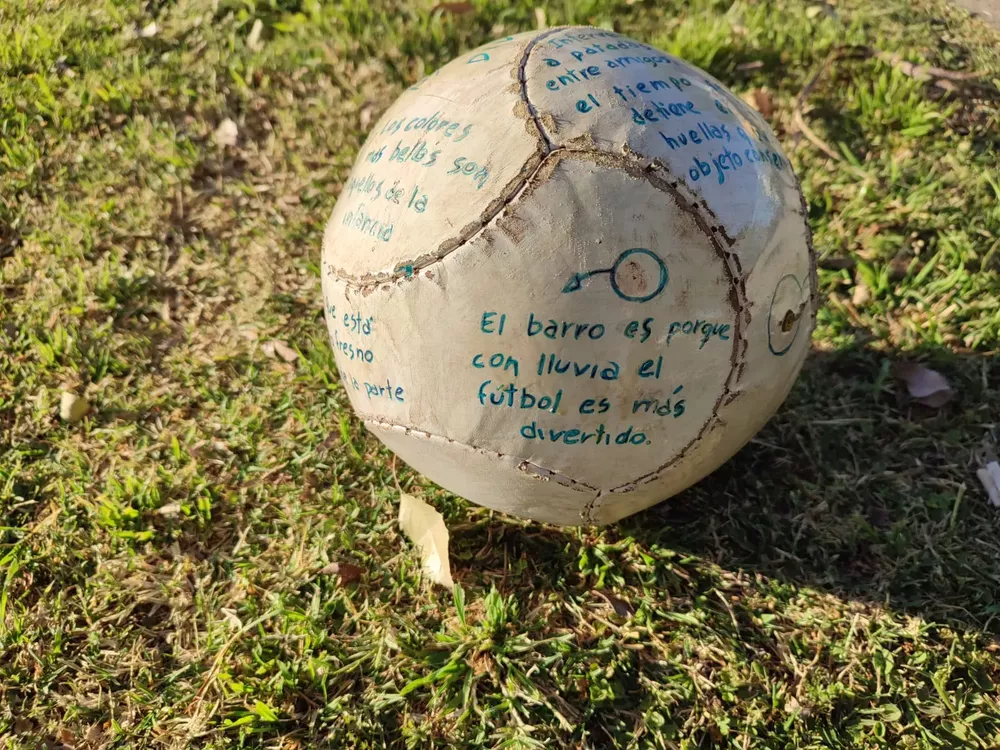 a patadas
entre amigos
el tiempo
detiene
huellas
objeto
Los colores
más bellos son
aquellos de la
infancia
está
fresno
la parte
El barro es porque
con lluvia el
fútbol es más
divertido.